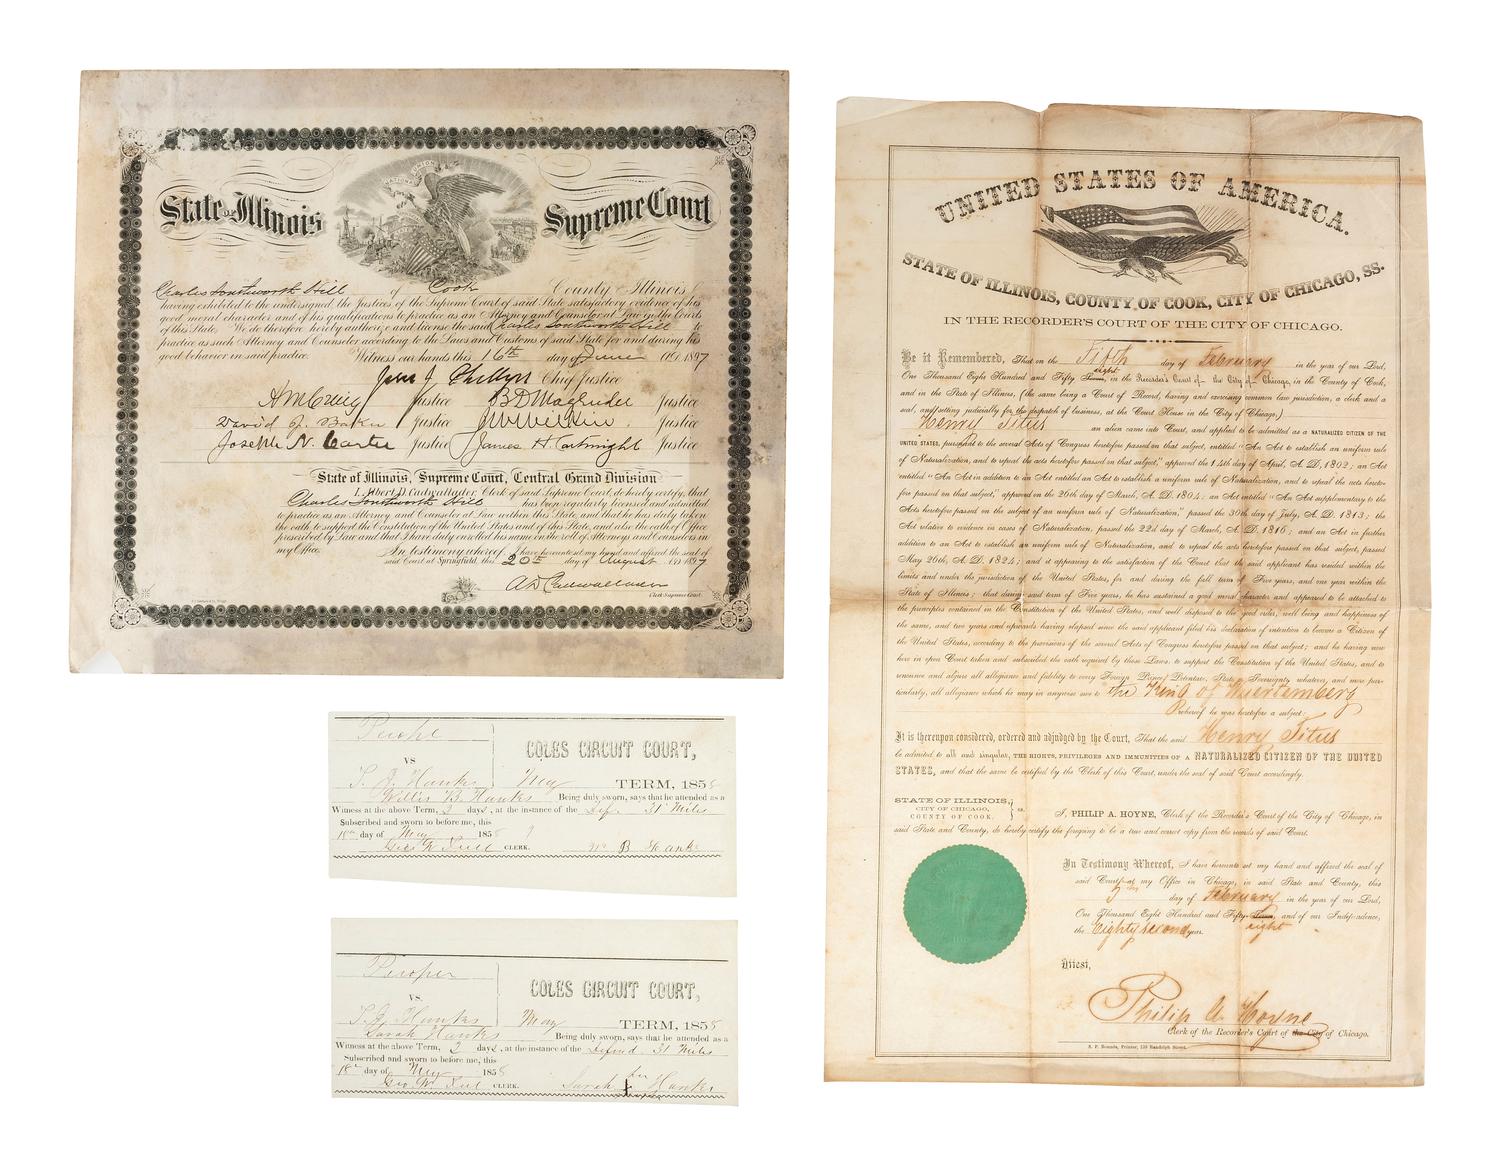 NATIONAL UNION
State of Illinois Supreme Court
Charles Southworth Hill of Cook County Illinois
having exhibited to the undersigned, the Justices of the Supreme Court of said State satisfactory evidence of his
good moral character and of his qualifications to practice as an Attorney and Counselor at Law in the Courts
of this State. We do therefore hereby authorize and license the said Charles Southworth Hill to
practice as such Attorney and Counselor according to the Laws and Customs of said State for and during his
good behavior in said practice. Witness our hands this 16th day of June A.D. 1897
Jesse J. Phillips Chief Justice
Justice B D Magruder Justice
David J. Baker Justice J W Wilkin Justice
Joseph N. Carter Justice James H Cartwright Justice
State of Illinois, Supreme Court, Central Grand Division
I, Albert D. Cadwallader, Clerk of said Supreme Court, do hereby certify, that
Charles Southworth Hill has been regularly licensed and admitted
to practice as an Attorney and Counselor at Law within this State, and that he has duly taken
the oath to support the Constitution of the United States and of this State, and also the oath of Office
prescribed by Law and that I have duly enrolled his name on the roll of Attorneys and Counselors in
my Office.
In testimony whereof, I have hereunto set my hand and affixed the seal of
said Court at Springfield, this 20th day of August A.D. 1897
A D Cadwallader
Clerk Supreme Court.
People
VS
T. J. Hanks
COLES CIRCUIT COURT,
May TERM, 1858
Willis B. Hanks Being duly sworn, says that he attended as a
Witness at the above Term, 2 days, at the instance of the Def. 31 Miles
Subscribed and sworn to before me, this
18th day of May 1858
Geo W Teel CLERK. Wm B Hanks
People
VS.
T. J. Hanks
COLES CIRCUIT COURT,
May TERM, 1858
Sarah Hanks Being duly sworn, says that he attended as a
Witness at the above Term, 2 days, at the instance of the Defend 31 Miles
Subscribed and sworn to before me, this
18th day of May 1858
Geo W. Teel CLERK. Sarah her Hanks
UNITED STATES OF AMERICA.
STATE OF ILLINOIS, COUNTY OF COOK, CITY OF CHICAGO, SS.
IN THE RECORDER'S COURT OF THE CITY OF CHICAGO.
Be it Remembered, That on the Fifth day of February in the year of our Lord,
One Thousand Eight Hundred and Fifty Seven eight, in the Recorder's Court of the City of Chicago, in the County of Cook,
and in the State of Illinois, (the same being a Court of Record, having and exercising common law jurisdiction, a clerk and a
seal, and sitting judicially for the dispatch of business, at the Court House in the City of Chicago,)
Henry Titus an alien came into Court, and applied to be admitted as a NATURALIZED CITIZEN OF THE
UNITED STATES, pursuant to the several Acts of Congress heretofore passed on that subject, entitled "An Act to establish an uniform rule
of Naturalization, and to repeal the acts heretofore passed on that subject," approved the 14th day of April, A. D. 1802; an Act
entitled "An Act in addition to an Act entitled an Act to establish a uniform rule of Naturalization, and to repeal the acts hereto-
fore passed on that subject," approved on the 26th day of March, A. D. 1804; an Act entitled "An Act supplementary to the
Acts heretofore passed on the subject of an uniform rule of Naturalization," passed the 30th day of July, A. D. 1813; the
Act relative to evidence in cases of Naturalization, passed the 22d day of March, A. D. 1816; and an Act in further
addition to an Act to establish an uniform rule of Naturalization, and to repeal the acts heretofore passed on that subject, passed
May 26th, A. D. 1824; and it appearing to the satisfaction of the Court that the said applicant has resided within the
limits and under the jurisdiction of the United States, for and during the full term of Five years, and one year within the
State of Illinois; that during said term of Five years, he has sustained a good moral character and appeared to be attached to
the principles contained in the Constitution of the United States, and well disposed to the good order, well being and happiness of
the same, and two years and upwards having elapsed since the said applicant filed his declaration of intention to become a Citizen of
the United States, according to the provisions of the several Acts of Congress heretofore passed on that subject; and he having now
here in open Court taken and subscribed the oath required by those Laws, to support the Constitution of the United States, and to
renounce and abjure all allegiance and fidelity to every Foreign Prince, Potentate, State or Sovereignty whatever, and more par-
ticularly, all allegiance which he may in anywise owe to the King of Wuertemberg
Whereof he was heretofore a subject:
It is thereupon considered, ordered and adjudged by the Court, That the said Henry Titus
be admitted to all and singular, THE RIGHTS, PRIVILEGES AND IMMUNITIES OF A NATURALIZED CITIZEN OF THE UNITED
STATES, and that the same be certified by the Clerk of this Court, under the seal of said Court accordingly.
STATE OF ILLINOIS,
CITY OF CHICAGO,
COUNTY OF COOK. } ss.
I, PHILIP A. HOYNE, Clerk of the Recorder's Court of the City of Chicago, in
said State and County, do hereby certify the foregoing to be a true and correct copy from the records of said Court.
In Testimony Whereof, I have hereunto set my hand and affixed the seal of
said Court at my Office in Chicago, in said State and County, this
day of February in the year of our Lord,
One Thousand Eight Hundred and Fifty-Seven eight, and of our Independence,
the Eighty second year.
Attest,
Philip A. Hoyne
Clerk of the Recorder's Court of the City of Chicago.
S. P. Rounds, Printer, 130 Randolph Street.